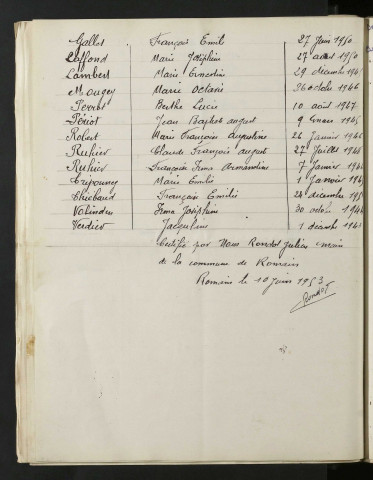 Gallet François Emil 27 Juin 1950
Laffond Marie Joséphin 27 août 1950
Lambert Marie Ernestin 29 décemb 194
Mougey Marie Octavie 26 octob 1946
Perrot Berthe Lucie 10 août 1947
Périot Jean Baptist august 9 mars 194
Robert Marie François augustine 26 Janvier 194
Ruhier Claude François august 27 Juillet 194
Ruhier François Irma Armandine 7 Janvier 194
Marie Emilie 1 Janvier 194
Thiébaud François Emilie 24 décembre 19
Irma Joséphine 30 octob 194
Verdier Jacqueline 1 décemb 194
Certifié par Nous Rondot Julien main
de la commune de Romain
Romain le 10 Juin 1953
Rondot